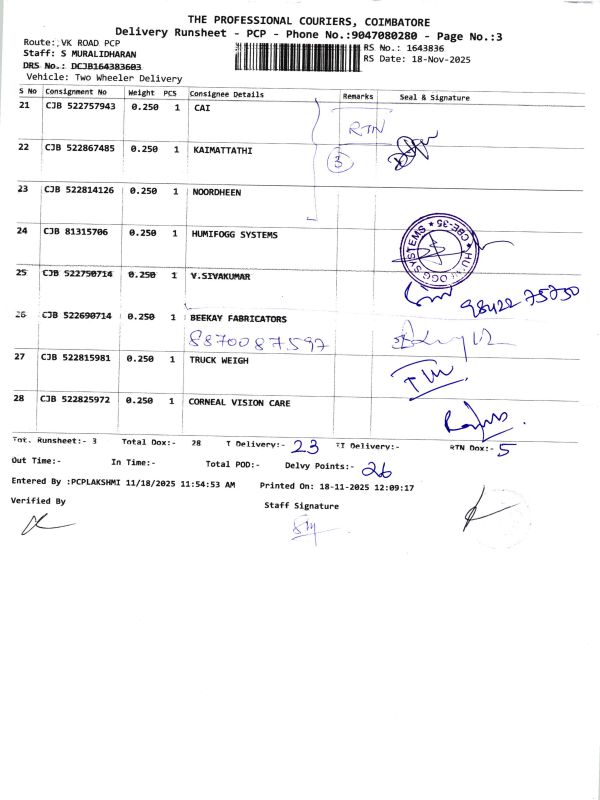 THE PROFESSIONAL COURIERS, COIMBATORE
Delivery Runsheet - PCP - Phone No.:9047080280 - Page No.:3
Route:,VK ROAD PCP
RS No.: 1643836
Staff: S MURALIDHARAN
RS Date: 18-Nov-2025
DRS No.: DCJB164383603
Vehicle: Two Wheeler Delivery
S No Consignment No Weight PCS Consignee Details Remarks Seal & Signature
21 CJB 522757943 0.250 1 CAI
RTN
22 CJB 522867485 0.250 1 KAIMATTATHI
3
23 CJB 522814126 0.250 1 NOORDHEEN
24 CJB 81315706 0.250 1 HUMIFOGG SYSTEMS
25 CJB 522750714 0.250 1 V.SIVAKUMAR
98422 75750
26 CJB 522690714 0.250 1 BEEKAY FABRICATORS
8870087597
27 CJB 522815981 0.250 1 TRUCK WEIGH
28 CJB 522825972 0.250 1 CORNEAL VISION CARE
Tot. Runsheet:- 3 Total Dox:- 28 T Delivery:- 23 TI Delivery:- RTN Dox:- 5
Out Time:- In Time:- Total POD:- Delvy Points:- 26
Entered By :PCPLAKSHMI 11/18/2025 11:54:53 AM Printed On: 18-11-2025 12:09:17
Verified By
Staff Signature